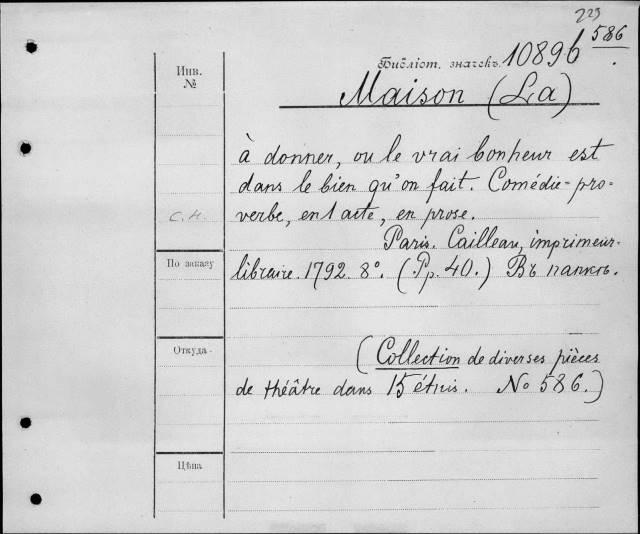 223
Библіот. значекъ. 10896 586
Инв.
№
Maison (La)
à donner, ou le vrai bonheur est
dans le bien qu'on fait. Comédie-pro-
С. Н.
verbe, en 1 acte, en prose.
Paris. Cailleau, imprimeur-
По заказу
libraire. 1792. 8°. (Pp. 40.) Въ папкѣ.
Откуда
(Collection de diverses pièces
de théâtre dans 15 étuis. No 586.)
Цѣна